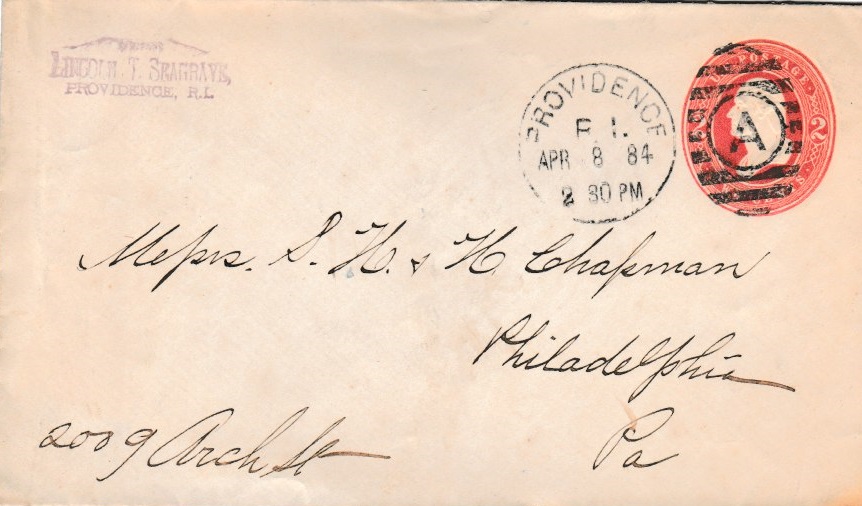 LINCOLN T. SEAGRAVE,
PROVIDENCE, R.I.
PROVIDENCE
R. I.
APR 8 84
2 30 PM
POSTAGE
2
A
Messrs. S. H. & H. Chapman
Philadelphia
2009 Arch St
Pa